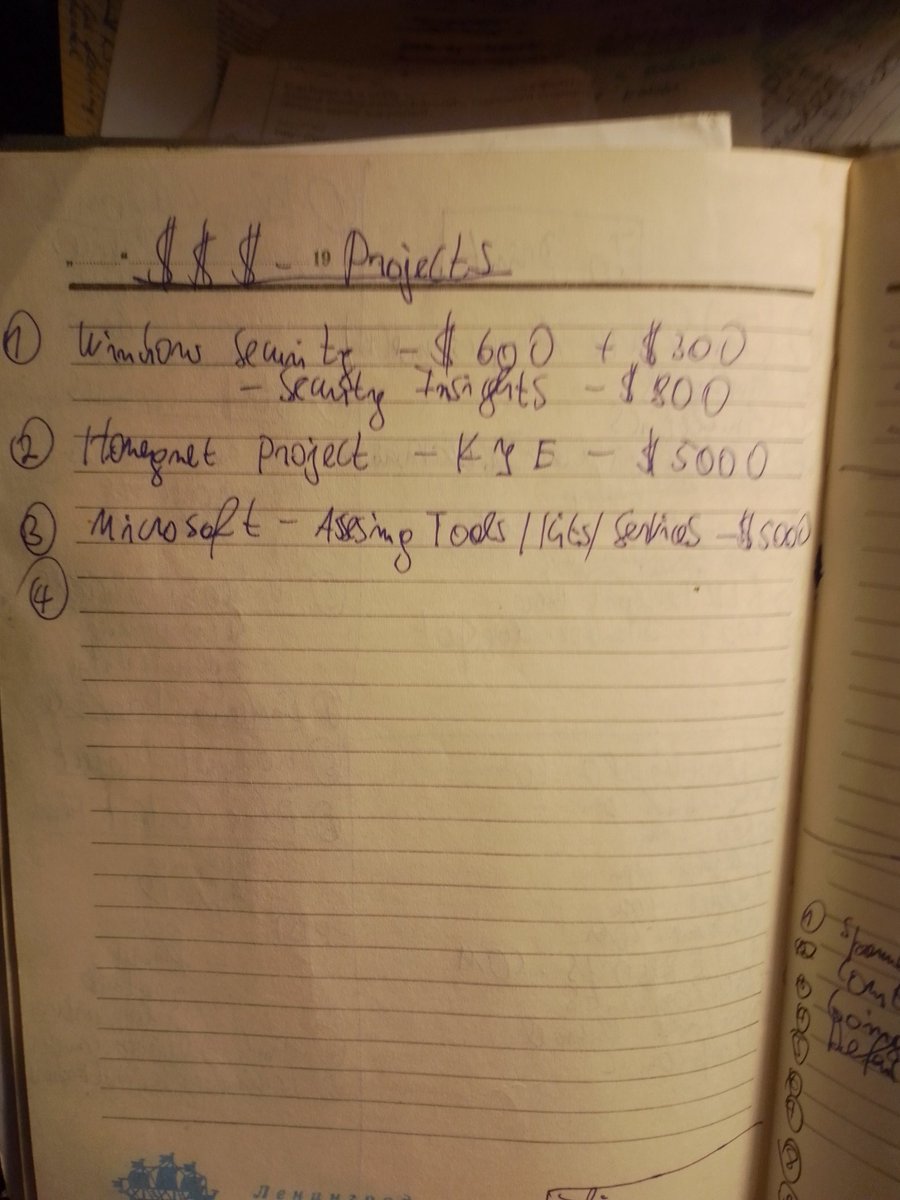 „ “ $ $ $ - 19 Projects
① Windows Security - $ 600 + $ 300
- Security Insights - $ 800
② Honeynet Project - K Y E - $ 5000
③ Microsoft - Assesing Tools / Kits / Services - $5000
④
①
Ленинград